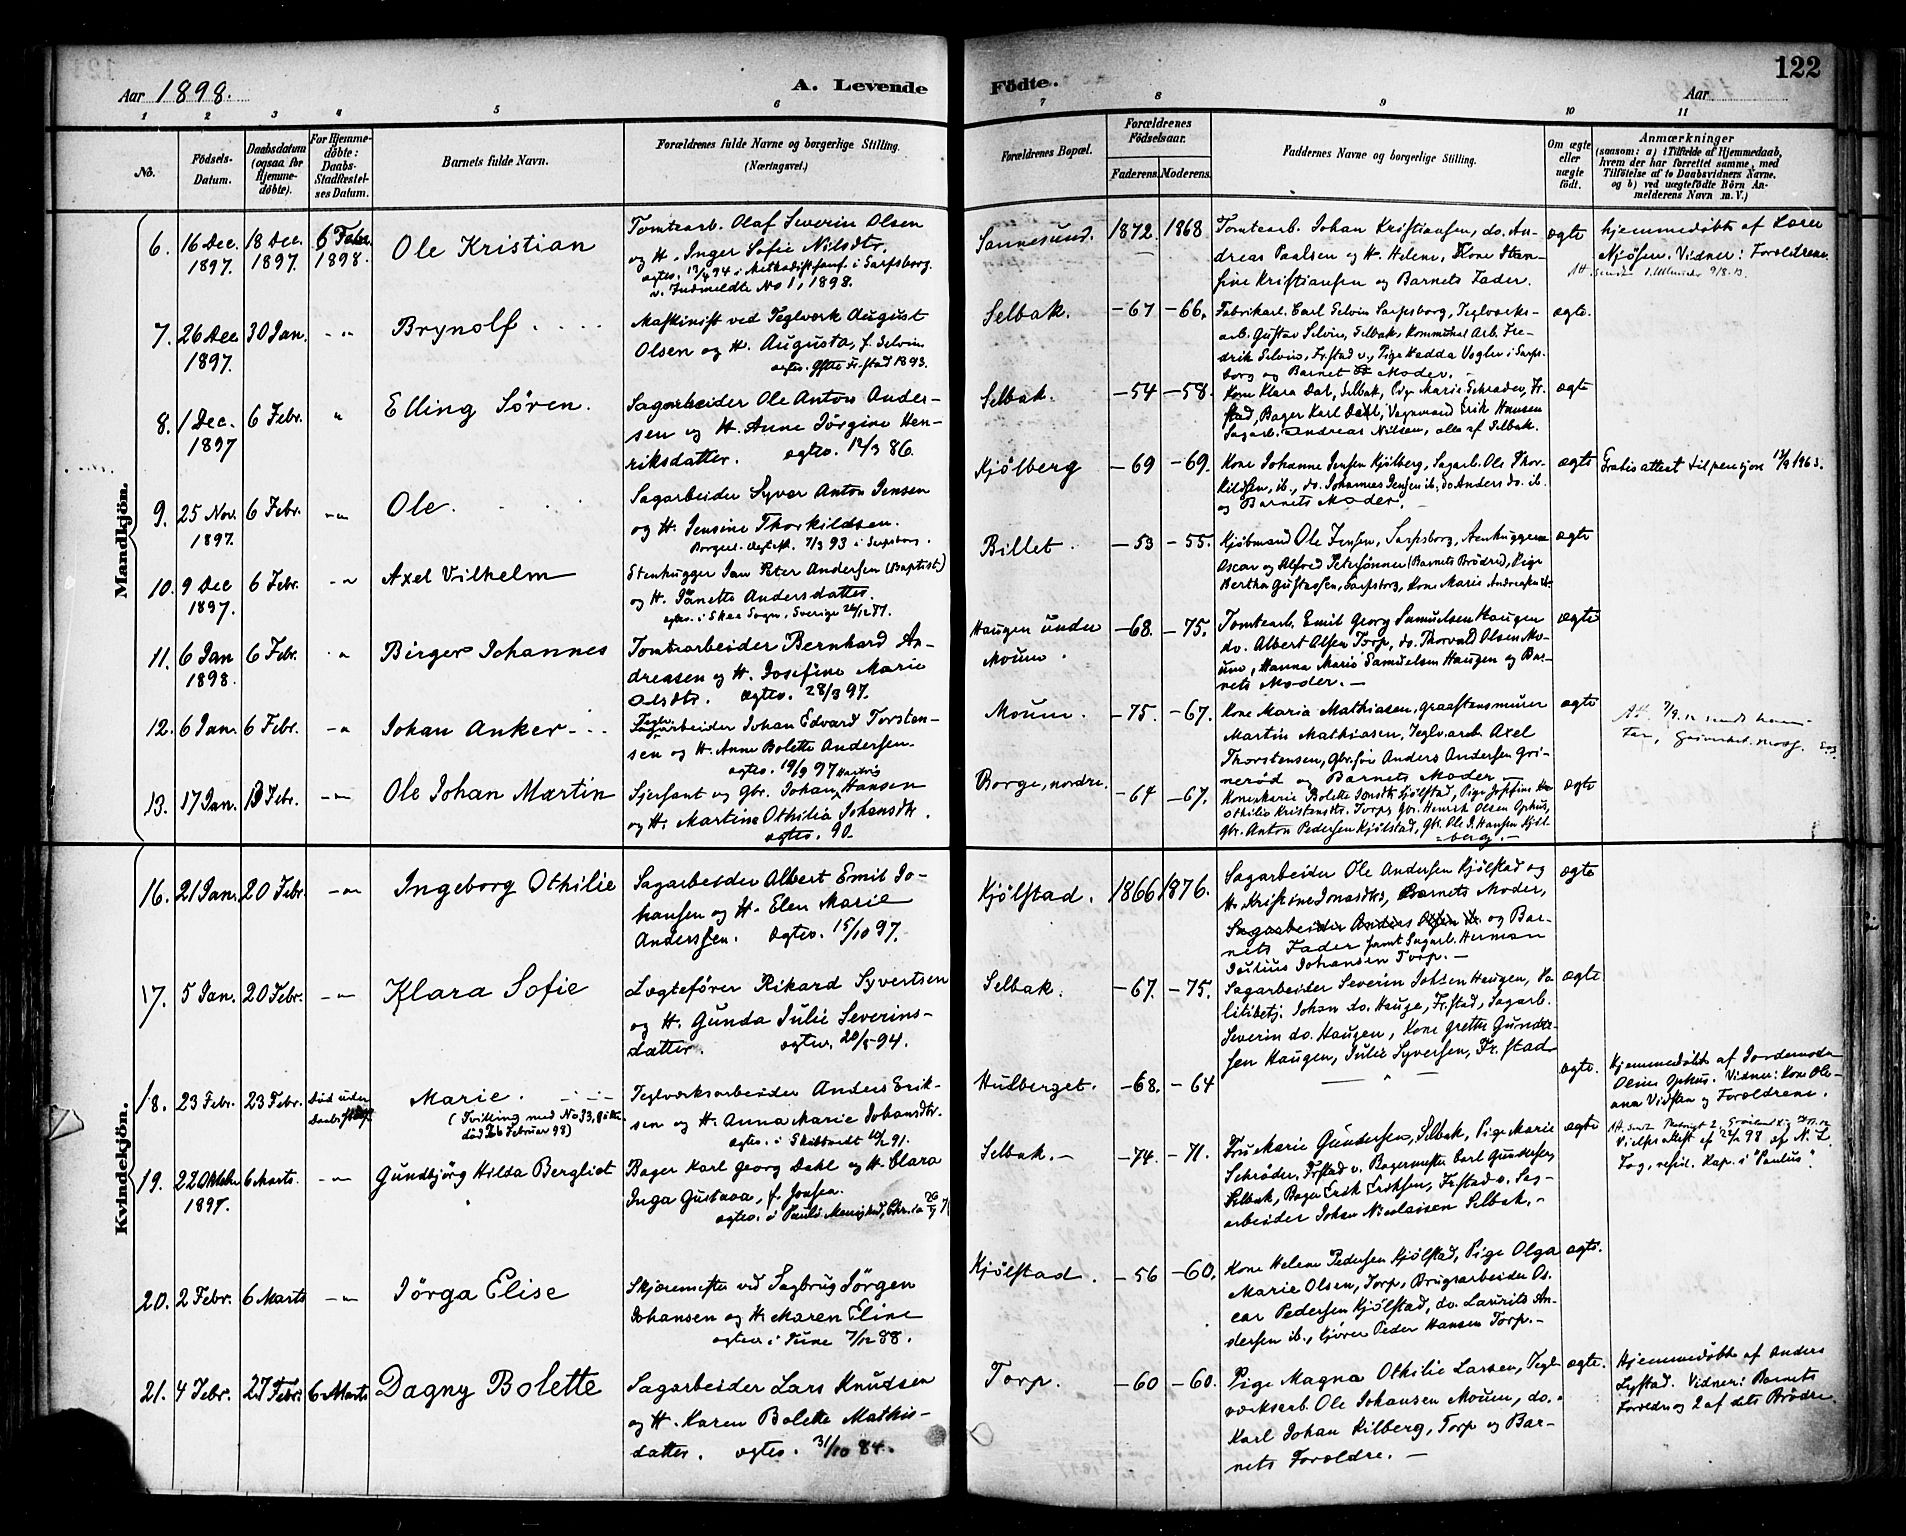 Aar 1898.
A. Levende
Födte.
122
Aar
1 2 3 4 5 6 7 8 9 10 11
No.
Födsels-
Datum.
Daabsdatum
(ogsaa for
Hjemme-
döbte).
For Hjemme-
döbte:
Daabs-
Stadfæstel-
ses Datum.
Barnets fulde Navn.
Forældrenes fulde Navne og borgerlige Stilling.
(Næringsvei.)
Forældrenes Bopæl.
Forældrenes
Födselsaar.
Faderens. Moderens.
Faddernes Navne og borgerlige Stilling.
Om ægte
eller
uægte
födt.
Anmærkninger
(saasom: a) i Tilfælde af Hjemmedaab,
hvem der har forrettet samme, med
Tilföielse af to Daabsvidners Navne,
og b) ved uægtefödte Börn An-
melderens Navn m. V.)
Mandkjön.
6. 16 Dec. 1897. 18 Dec. 1897. 6 Febr. 1898. Ole Kristian
Tomtearb. Olaf Severin Olsen
og H. Inger Sofie Nilsdtr.
i Sarpsborg.
v. Indmeldte No 1, 1898.
Sannesund. 1872. 1868
Tomtearb. Johan Kristiansen, do. An-
dreas Paalsen og H. Helene, Kone
Kristiansen og Barnets Fader.
ægte
hjemmedøbt af
Vidner: Forældrene.
7. 26 Dec 1897. 30 Jan. - " Brynolf
Maskinist ved Teglværk August
Olsen og H. Augusta, f. Selvin
ægtev. Fr.stad 1893.
Selbak. -67 -66.
Fabrikarb. Carl Selvin Sarpsborg, Teglværks-
arb. Gustav Selvin, Selbak, Kommunal Arb. Fre-
drik Selvin, Fr.stad v., Pige Hadda Vogler i Sarps-
borg og Barnet Moder.
ægte.
8. 1 Dec. 1897 6 Febr. " Elling Sören.
Sagarbeider Ole Anton Ander-
sen og H. Anne Jörgine Hen-
riksdatter. ægtev. 12/3 86.
Selbak. -54 -58.
Kone Klara Dal, Selbak, Pige Marie Schrøder, Fr.
stad, Bager Karl Dahl, Erik Hansen
Sagarb. Andreas Nilsen, alle af Selbak.
ægte
9. 25 Nov. 1897. 6 Febr. - " Ole.
Sagarbeider Syver Anton Jensen
og H. Jensine Thorkildsen.
7/3 93 i Sarpsborg.
Kjölberg -69 -69.
Kone Johanne Jensen Kjölberg, Sagarb. Ole Thor-
kildsen, ib., do. Johannes Jensen ib. do Anders do. ib.
og Barnets Moder.
ægte
Gratis attest til pensjon 1963.
10. 9 Dec 1897. 6 Febr. - " Axel Vilhelm
Stenhugger Jan Peter Andersen (Baptist)
og H. Janette Andersdatter.
ægtev. i Skee Sogn, Sverige 26/12 81.
Billet. -53 -55.
Kjöbmand Ole Jensen, Sarpsborg, Stenhuggerne
Oscar og Alfred Petersönner (Barnets Brödre), Pige
Bertha Gustafsen, Sarpsborg, Kone Marie
ægte
11. 6 Jan 1898. 6 Febr. " Birger Johannes
Tomtearbeider Bernhard An-
dreasen og H. Josefine Marie
Olsdtr. Ægtev. 28/3 97.
Haugen under
Moum. -68. -75.
Tomtearb. Emil Georg Samuelsen Haugen
do. Albert Olsen Torp, do. Thorvald Olsen Mo-
um, Hanna Marie Samuelsen Haugen og Bar-
nets Moder. -
ægte
12. 6 Jan. 6 Febr. - " Johan Anker
Tegl-
arbeider Johan Edvard Torsten-
sen og H. Anne Bolette Andersen.
ægtev. 19/9 97
Moum. -75. -67.
Kone Maria Mathiasen, Graastensmurer
Martin Mathiasen, Teglv.arb. Axel
Thorstensen, Gbr. Anders Andersen Gri-
nerød og Barnets Moder
ægte
13. 17 Jan. 13 Febr. - " Ole Johan Martin
Sjersant og Gbr. Johan Hansen
og H. Martine Othilia Johansdtr.
ægtev. 90.
Borge, nordre. -64 -67.
Kone Marie Bolette Kjölstad, Pige Josefine
Othilie Kristensdtr. Torp, Gbr. Henrik Olsen Ophus,
Gbr. Anton Pedersen Kjölstad, Gbr. Ole J. Hansen Kjöl-
berg. -
ægte
Kvindekjön.
16. 21 Jan. 20 Febr - " Ingeborg Othilie
Sagarbeider Albert Emil Jo-
hansen og H. Elen Marie
Anderssen. Ægtev. 15/10 97.
Kjölstad. 1866 1876.
Sagarbeider Ole Andersen Kjölstad og
H. Kristine Jonasdtr, Barnets Moder,
Sagarbeider Anders Olsen ib. og Bar-
nets Fader samt Sagarb. Herman
Julius Johansen Torp. -
ægte
17. 5 Jan. 20 Febr. - " Klara Sofie
Lægtefører Rikard Syvertsen
og H. Gunda Julie Severins-
datter. ægtev. 20/5 94.
Selbak. -67. -75.
Sagarbeider Severin Johsen Haugen, Po-
litibetj. Johan do. Hauge, Fr.stad, Sagarb.
Severin do. Haugen, Kone Grethe Gunder-
sen Haugen, Julie Syversen, Fr.stad
ægte.
18. 23 Febr. 23 Febr. Död uden Daabs Marie.
(Tvilling med No 33,
död 26 Februar 98)
Teglværksarbeider Anders Erik-
sen og H. Anna Marie Johansdtr.
ægtev. i 91.
Hulberget. -68. -64
ægte.
Hjemmedøbt af Jordemoder
Oline Ophus. Vidner: Kone Ole-
ana Vidsten og Forældrene.
19. 22 Oktober 1897. 6 Marts. - " Gundbjörg Hilda Bergliot
Bager Karl Georg Dahl og H. Clara
Inga Gustava, f. Jonsen.
Selbak. - -74. -71.
Fru Marie Gundersen, Selbak, Pige Marie
Schröder, Fr.stad v. Bagermester Carl Gundersen,
Selbak, Bager Erik Eriksen, Fr.stad v. Sag-
arbeider Johan Nicolaisen Selbak. -
ægte
Vielsesattest af 98 af N. L.
Fog, resid. Kap. i "Paulus".
20. 2 Febr. 6 Marts - " Jörga Elise
Skjæremester ved Sagbrug Jörgen
Johansen og H. Maren Eline
ægtev. i Tune 7/12 88.
Kjölstad. -56 -60.
Kone Helene Pedersen Kjölstad, Pige Olga
Marie Olsen, Torp, Brugsarbeider Os-
car Pedersen Kjölstad, do. Laurits An-
dersen ib., Kjører Peder Hansen Torp. -
ægte.
21. 4 Febr. 27 Febr. 6 Marts Dagny Bolette
Sagarbeider Lars Knudsen
og H. Karen Bolette Mathis-
datter. ægtev. 31/10 84.
Torp. -60 -60.
Pige Magna Othilie Larsen, Tegl-
værksarb. Ole Johansen Moum, do.
Karl Johan Kilberg, Torp og Bar-
nets Forældre. -
ægte.
Hjemmedøbt af Anders
Lystad. Vidner: Barnets
Forældre og 2 af dets Brödre.